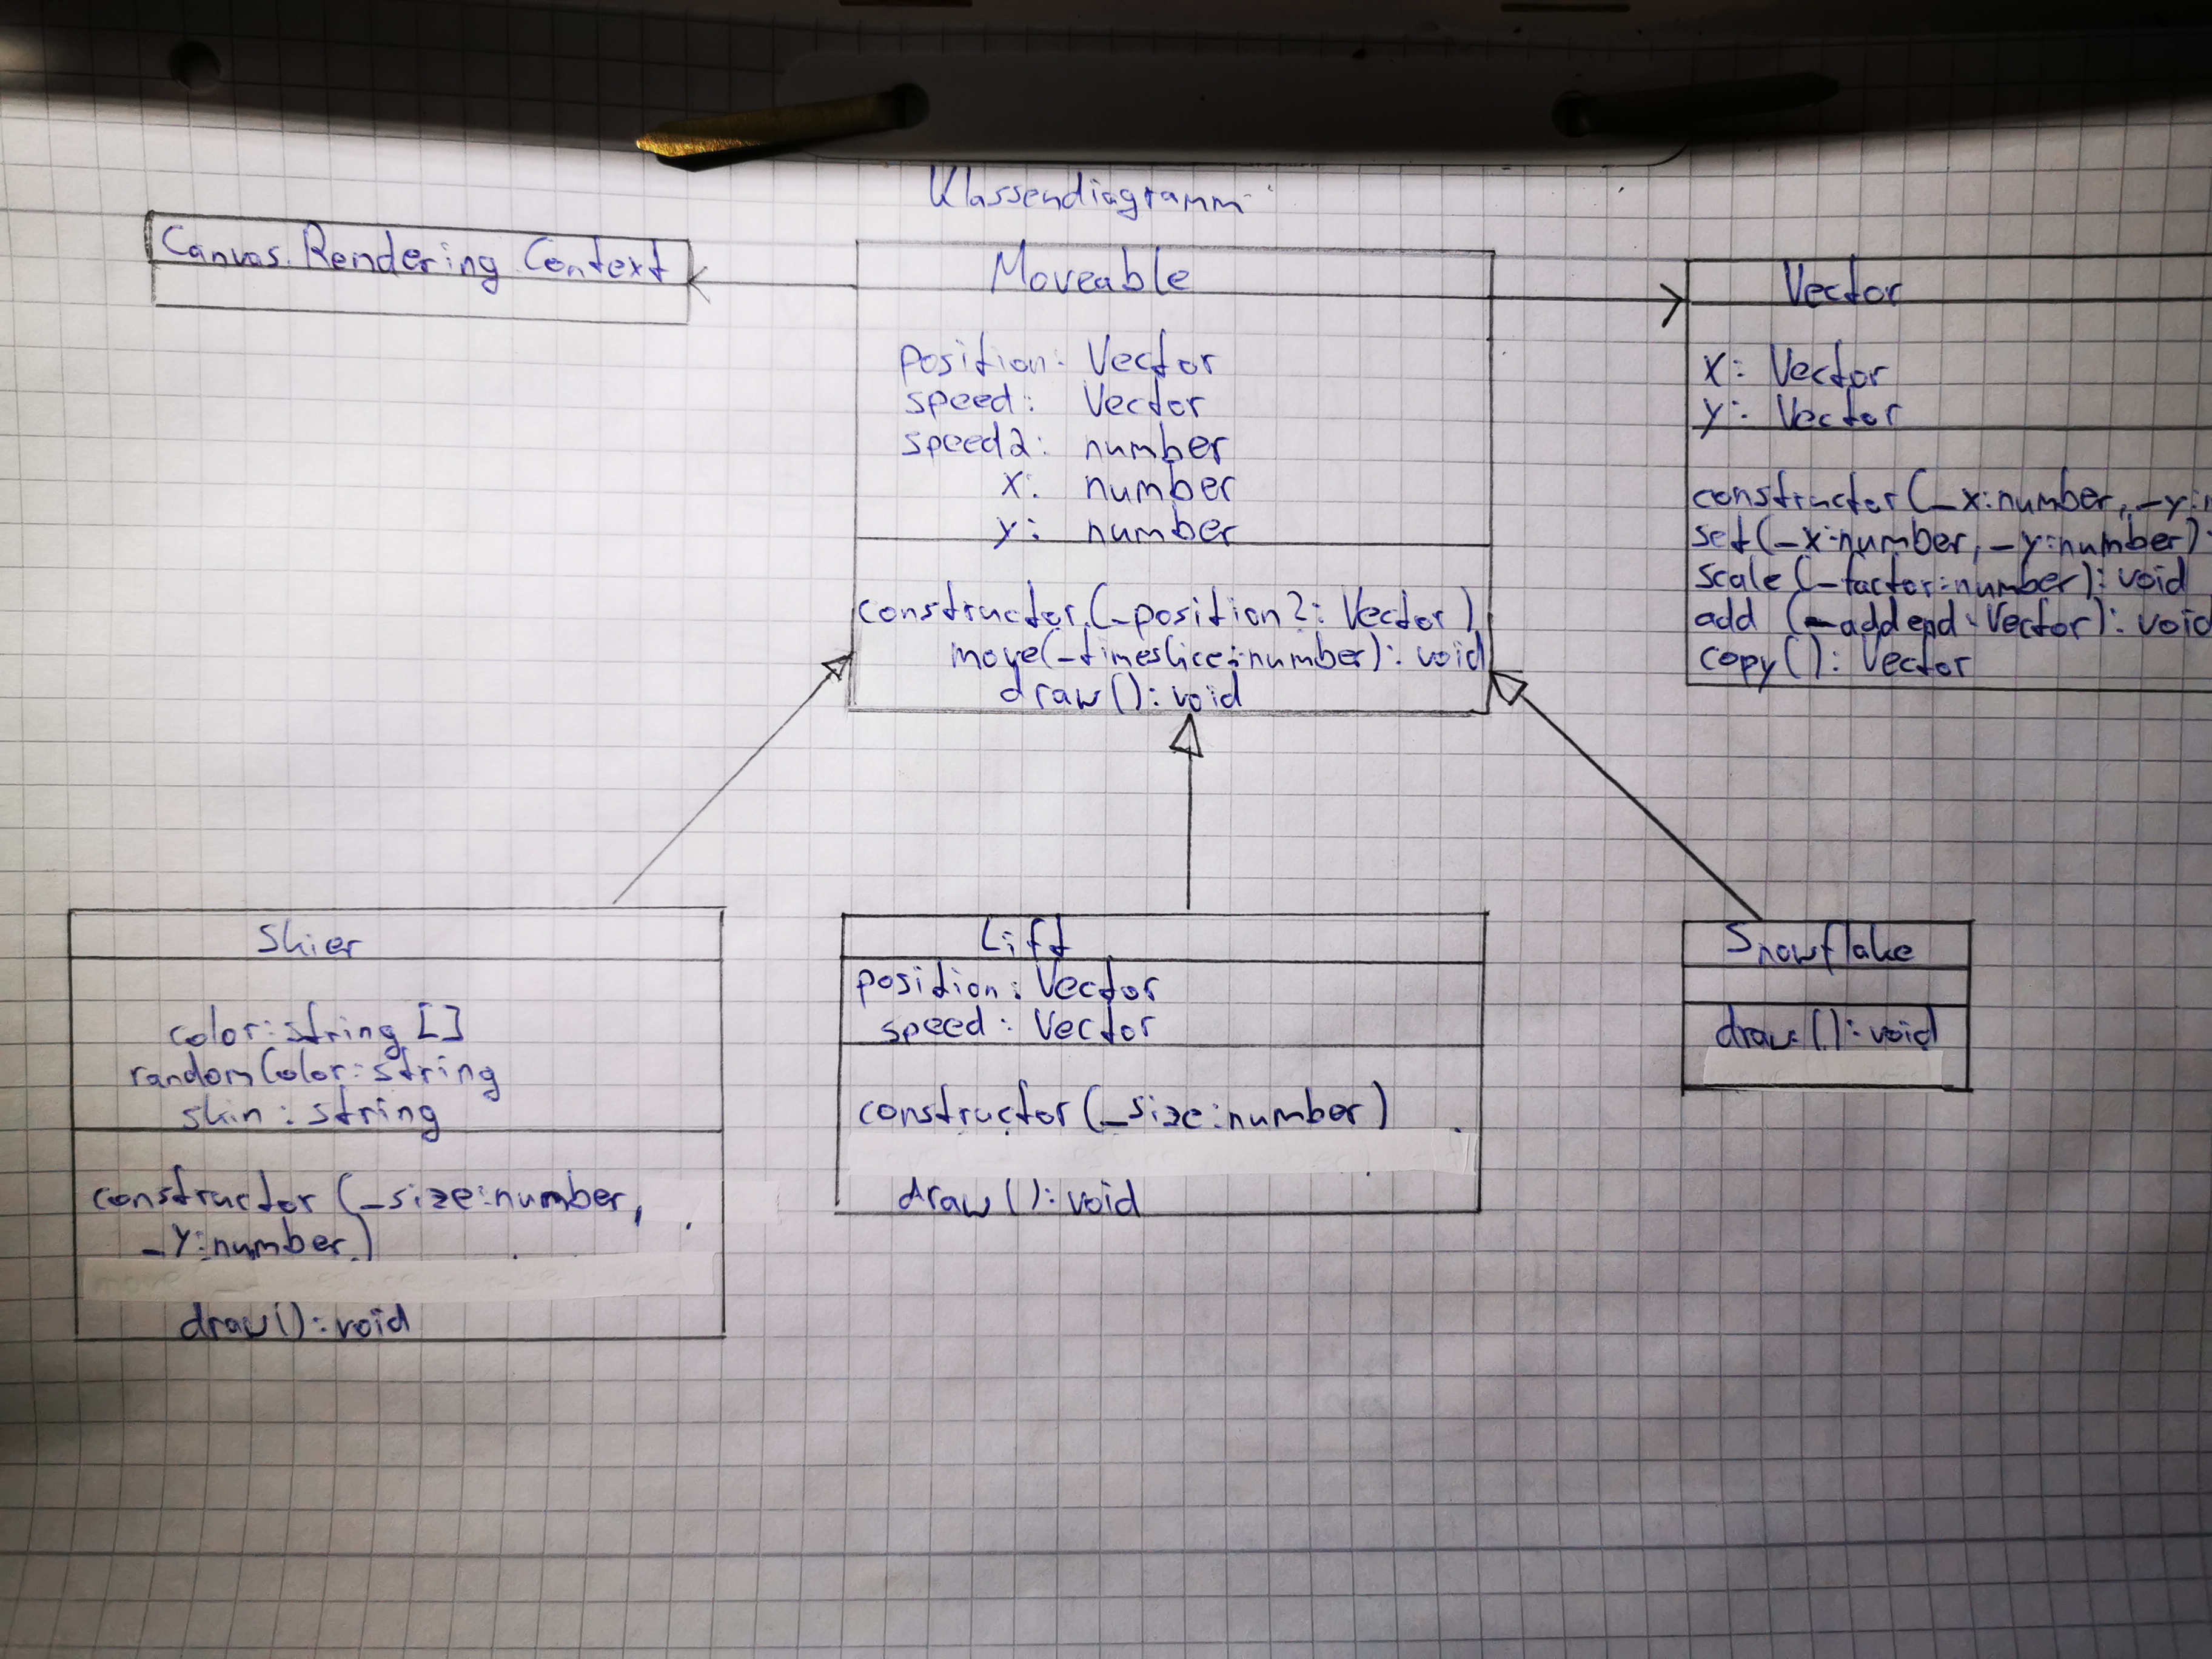 Klassendiagramm
Canvas Rendering Context
Moveable
position: Vector
speed: Vector
speed2: number
x: number
y: number
constructor(_position?: Vector)
move(_timeslice:number): void
draw(): void
Vector
x: Vector
y: Vector
constructor(_x:number, _y:
set(_x:number, _y:number):
scale(_factor:number): void
add (_addend:Vector): void
copy(): Vector
Skier
color:string []
randomColor:string
skin:string
constructor (_size:number,
_y:number)
draw():void
Lift
position: Vector
speed: Vector
constructor(_size:number)
draw():void
Snowflake
draw():void